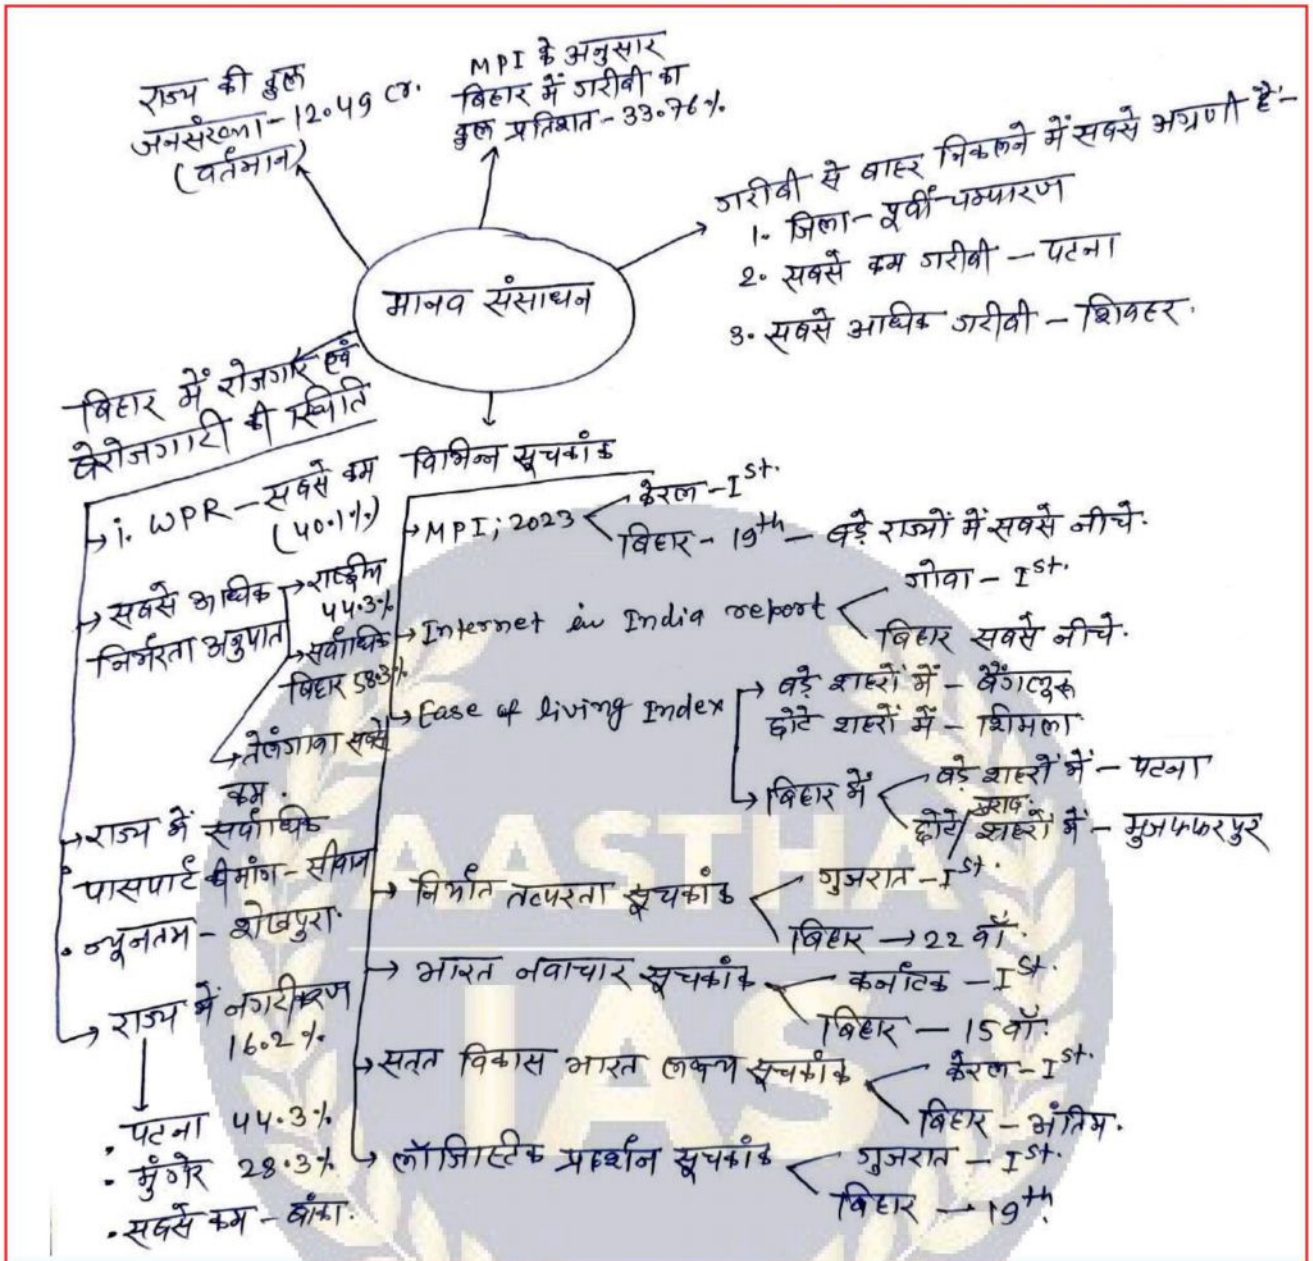 राज्य की कुल
जनसंख्या - 12.49 cr.
(वर्तमान)
MPI के अनुसार
बिहार में गरीबी का
कुल प्रतिशत - 33.76%
गरीबी से बाहर निकलने में सबसे अग्रणी है:-
1. जिला - पूर्वी चम्पारण
2. सबसे कम गरीबी - पटना
3. सबसे अधिक गरीबी - शिवहर.
मानव संसाधन
बिहार में रोजगार एवं
बेरोजगारी की स्थिति
i. WPR - सबसे कम
(40.1%)
सबसे अधिक
निर्भरता अनुपात
राष्ट्रीय
44.3%
सर्वाधिक
बिहार 58.3%
तेलंगाना सबसे
कम.
राज्य में सर्वाधिक
पासपोर्ट की मांग - सीवान
न्यूनतम - शेखपुरा.
राज्य में नगरीकरण
16.2%
पटना 44.3%
मुंगेर 28.3%
सबसे कम - बांका.
विभिन्न सूचकांक
MPI; 2023
केरल - Ist.
बिहार - 19th - बड़े राज्यों में सबसे नीचे.
Internet in India report
गोवा - Ist.
बिहार सबसे नीचे.
Ease of living Index
बड़े शहरों में - बैंगलूरू
छोटे शहरों में - शिमला
बिहार में
बड़े शहरों में - पटना
छोटे/खराब शहरों में - मुजफ्फरपुर
निर्यात तत्परता सूचकांक
गुजरात - Ist.
बिहार → 22 वाँ.
भारत नवाचार सूचकांक
कर्नाटक - Ist.
बिहार - 15 वाँ.
सतत विकास भारत लक्ष्य सूचकांक
केरल - Ist.
बिहार - अंतिम.
लॉजिस्टिक प्रदर्शन सूचकांक
गुजरात - Ist.
बिहार - 19th.
AASTHA
IAS